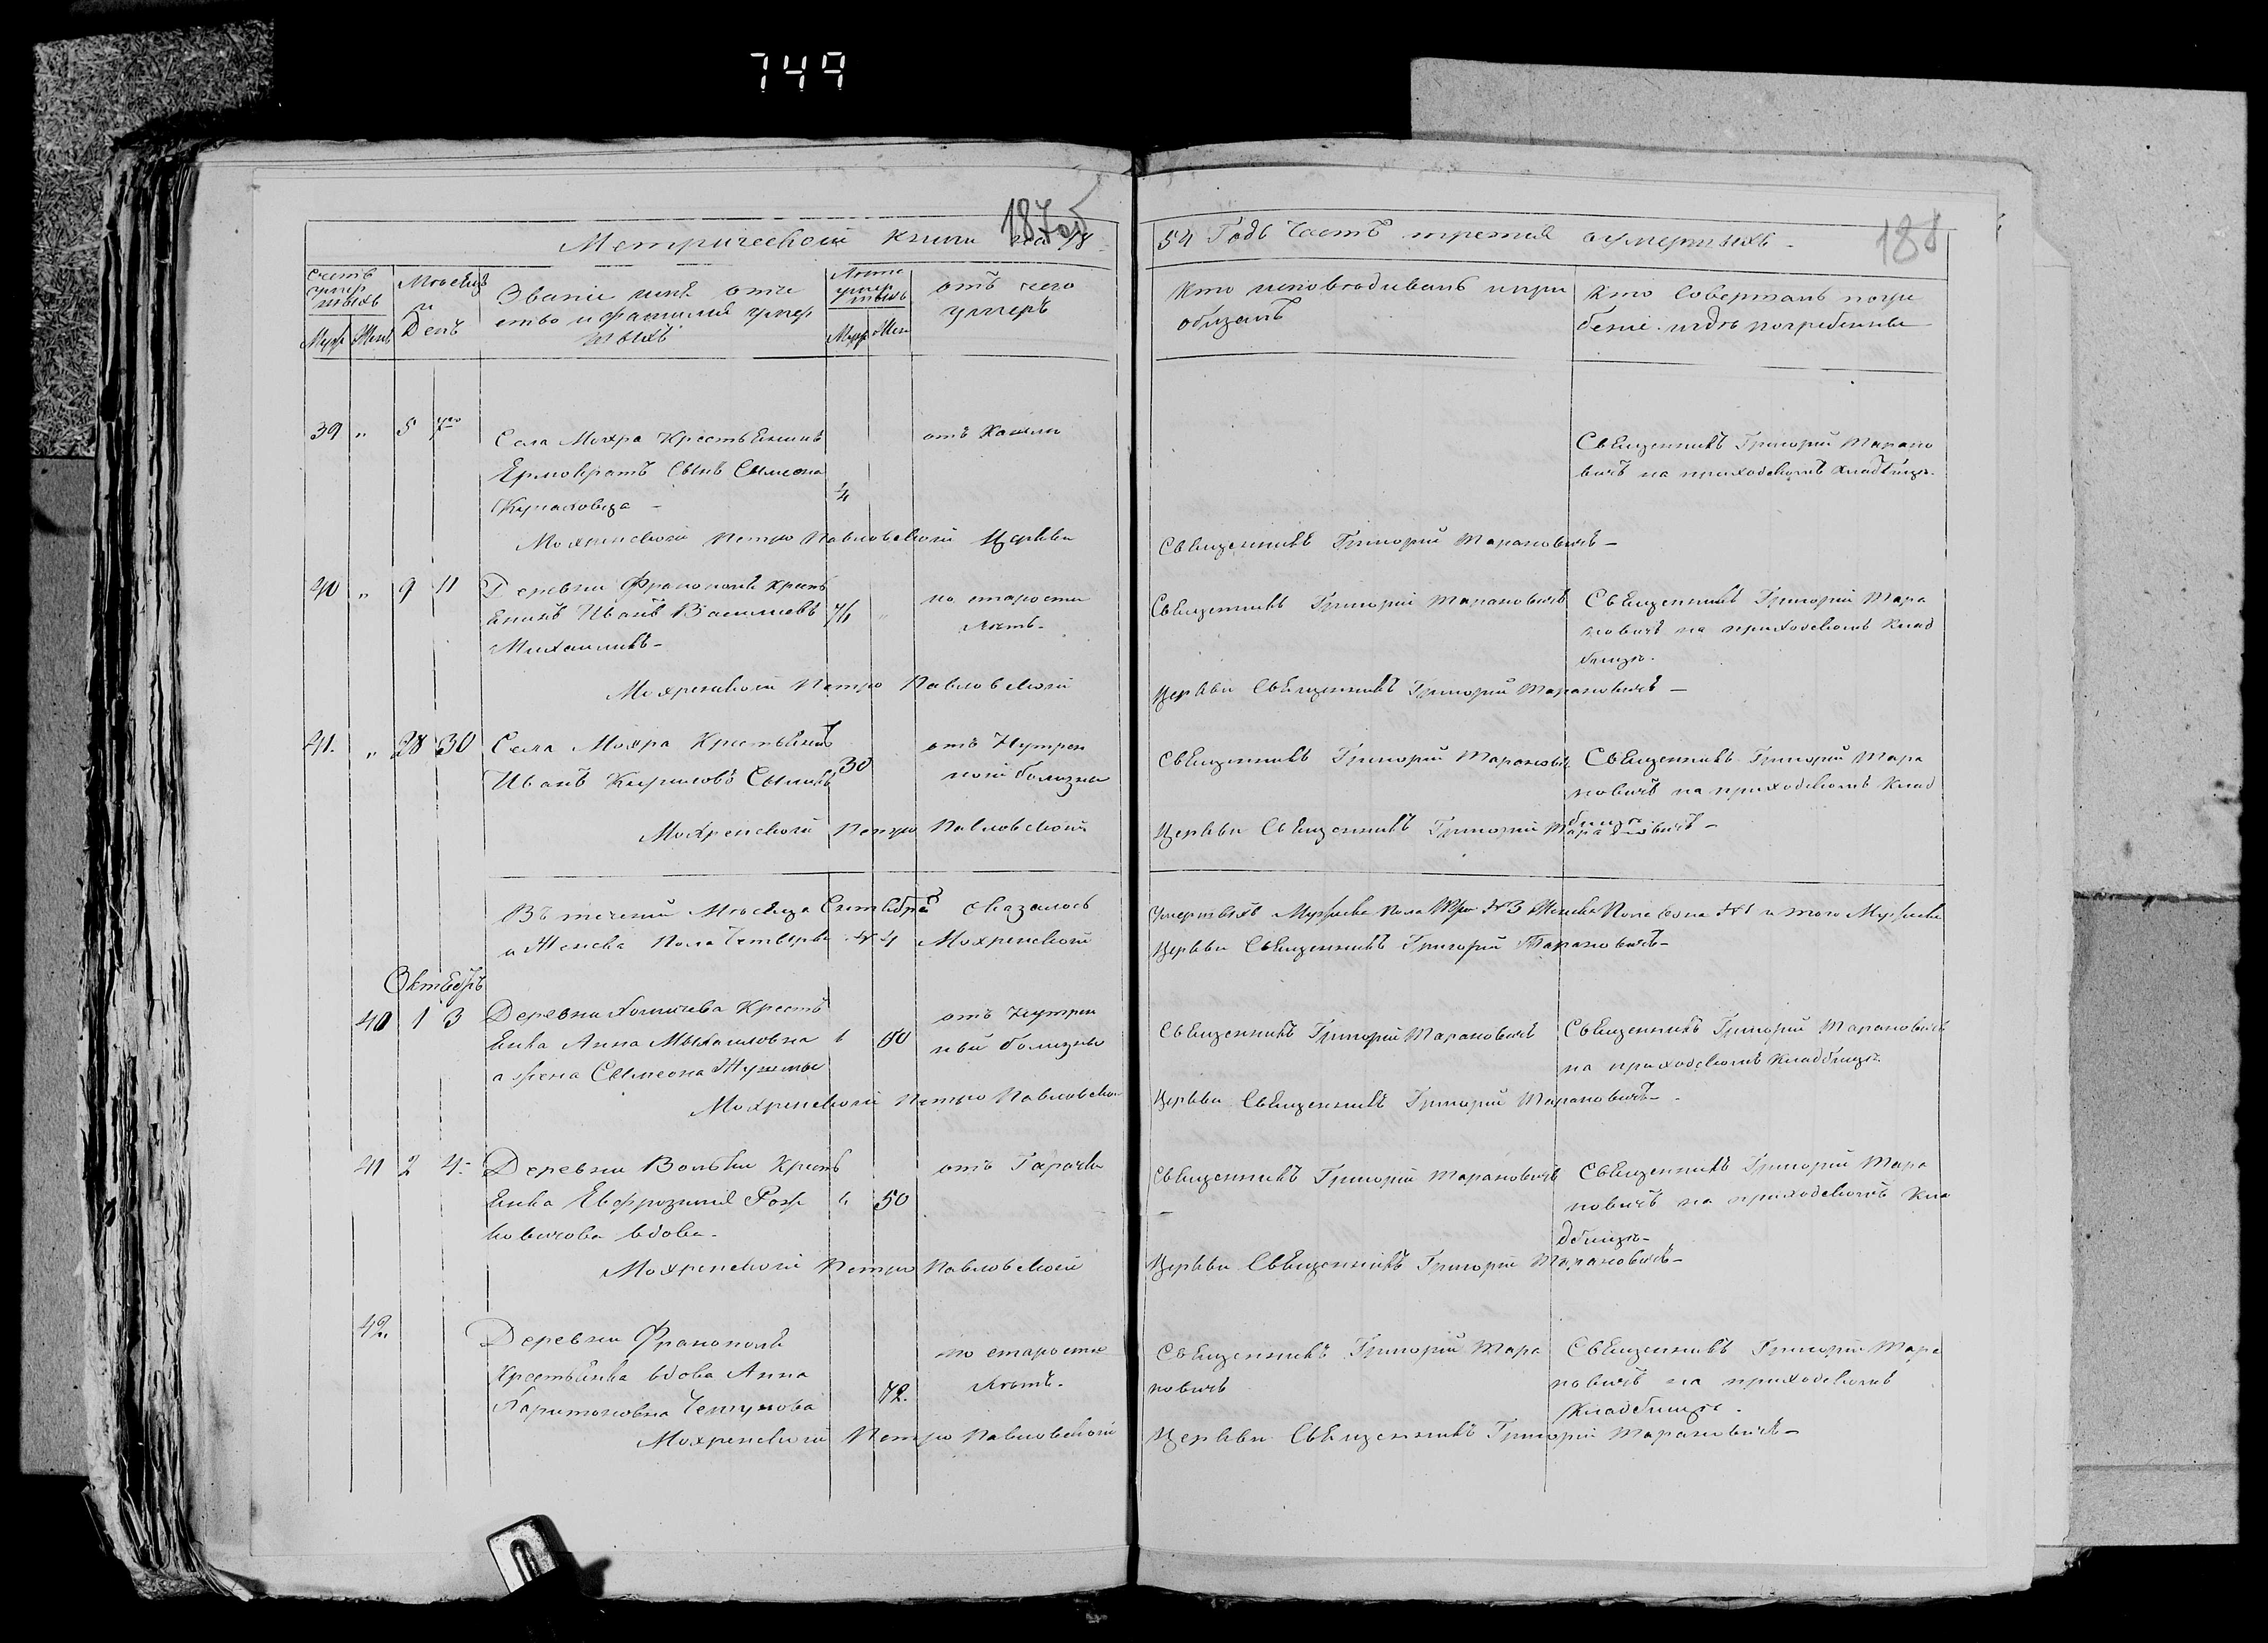 749
187об
188
Метрической книги на 18
54 Годъ Часть третия о умершихъ
Счетъ умершихъ
Муж Женс
Мѣсяцъ и День
Званіе имя отче
ство и фамилия умер
шихъ
Лета умершихъ
Муж Жен
отъ чего
умеръ
Кто исповѣдывалъ и при
общалъ
Кто Совершалъ погре
бение и гдѣ погребены
39 „ 5 7го
Села Мохра Крестьянинъ
Ермократъ Сынъ Сымеона
1/4
отъ Кашли
Священникъ Григорий Тарано
вичъ на приходскомъ Кладбищѣ.
Мохренской Петро Павловской Церкви
Священникъ Григорий Тарановичъ –
40 „ 9 11
Деревни Франополя Крест
янинъ Иванъ Василиевъ
Михаликъ –
76 „
по старости
Летъ.
Священникъ Григорий Тарановичъ
Священникъ Григорий Тара
новичъ на приходскомъ Клад
бищѣ.
Мохренской Петро Павловской
Церкви Священникъ Григорий Тарановичъ –
41. „ 28 30
Села Мохра Крестьянинъ
Иванъ Кириловъ
30
отъ Нутрен
ной болизны
Священникъ Григорий Таранович
Священникъ Григорий Тара
новичъ на приходскомъ Клад
бищѣ
Мохренской Петро Павловской
Церкви Священникъ Григорий Тарановичъ –
Въ течении Мѣсяца Сентября оказалось
Умершихъ Мужеска Пола Три № 3 Женска Пола Една № 1 и того Мужеска
и Женска Пола Четверы № 4 Мохренской
Церкви Священникъ Григорий Тарановичъ –
Октябрь
40 1 3
Деревни Хомичева Кресть
янка Анна Михаиловна
а жена Сымеона
60
отъ Нутрен
ный болизны
Священникъ Григорий Тарановичъ
Священникъ Григорий Тарановичъ
на приходскомъ Кладбищѣ.
Мохренской Петро Павловской
Церкви Священникъ Григорий Тарановичъ –
41 2 4.
Деревни Вольки Кресть
янка Евфрозиния Рож
ковичова вдова.
50
отъ Гарачки
Священникъ Григорий Тарановичъ
Священникъ Григорий Тара
новичъ на приходскомъ Кла
дбищѣ –
Мохренской Петро Павловской
Церкви Священникъ Григорий Тарановичъ –
42.
Деревни Франополя
Крестьянка вдова Анна
Харитоновна
72.
по старости
Летъ.
Священникъ Григорий Тара
новичъ
Священникъ Григорий Тара
новичъ на приходскомъ
Кладбищѣ.
Мохренской Петро Павловской
Церкви Священникъ Григорий Тарановичъ –